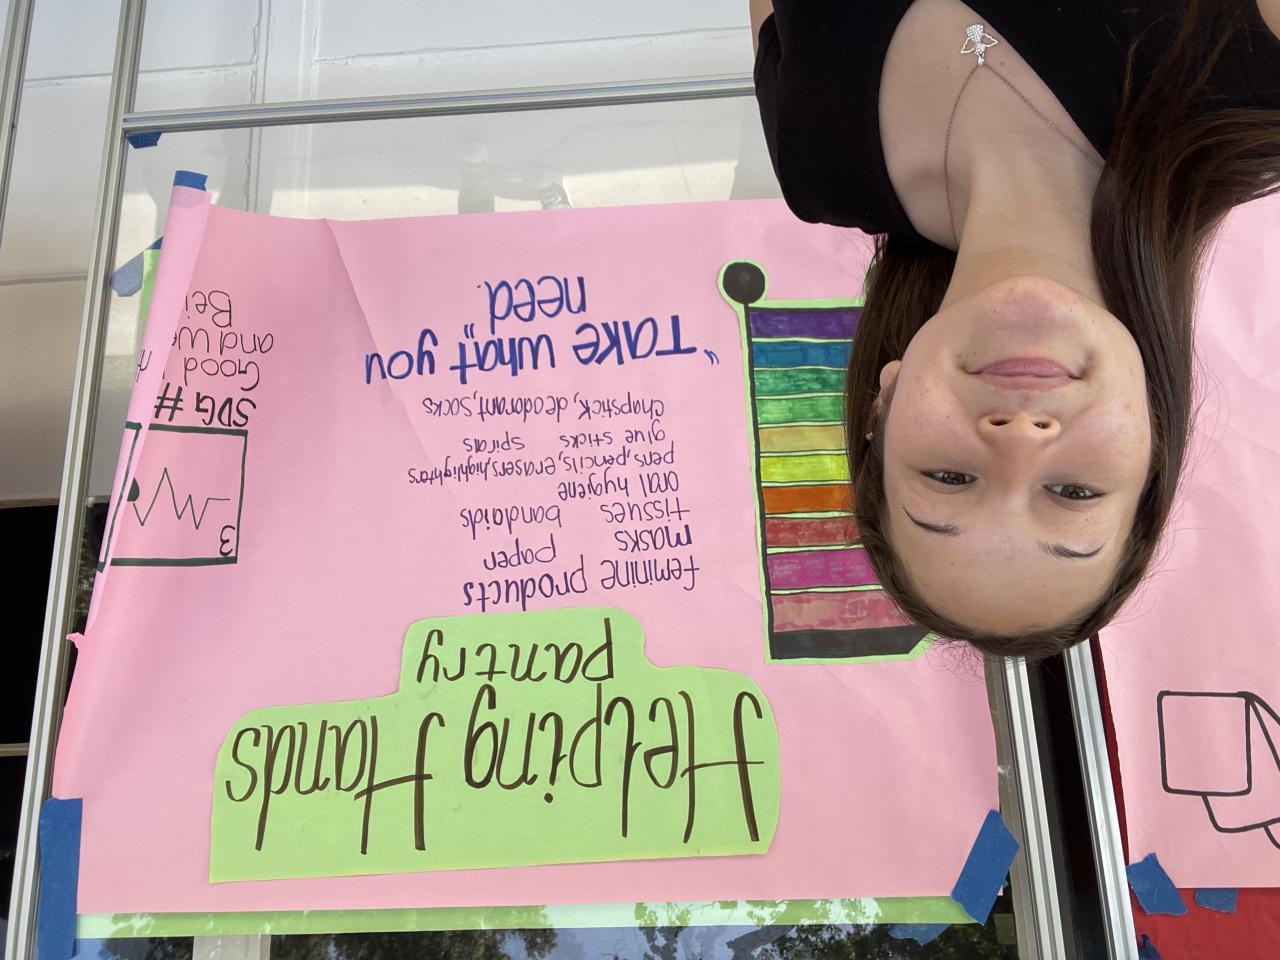 Helping Hands
pantry
feminine products
masks paper
tissues bandaids
oral hygene
pens, pencils, erasers, highlighters
glue sticks spirals
chapstick, deodorant, socks
"Take what" you
need.
3
SDG #
Good
and We
Bei